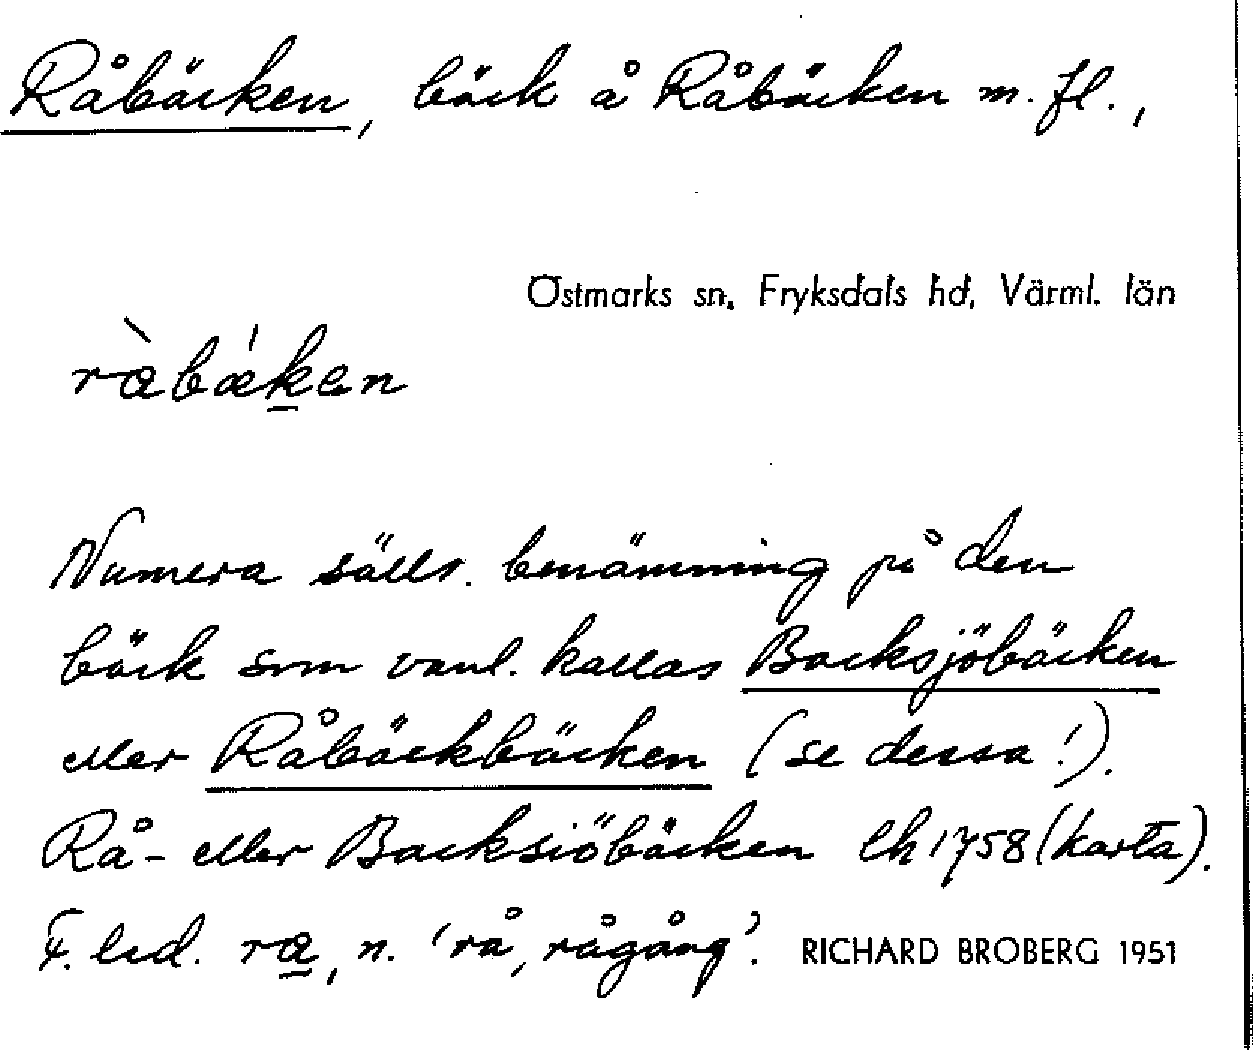 Råbäcken, bäck å Råbäcken m. fl.,
Östmarks sn, Fryksdals hd, Värml. län
ràbǽken
Numera sälls. benämning på den
bäck som vanl. kallas Backsjöbäcken
eller Råbäckbäcken (se dessa!).
Rå- eller Backsiöbäcken lh 1758 (karta).
F. led. ra, n. 'rå, rågång'. RICHARD BROBERG 1951